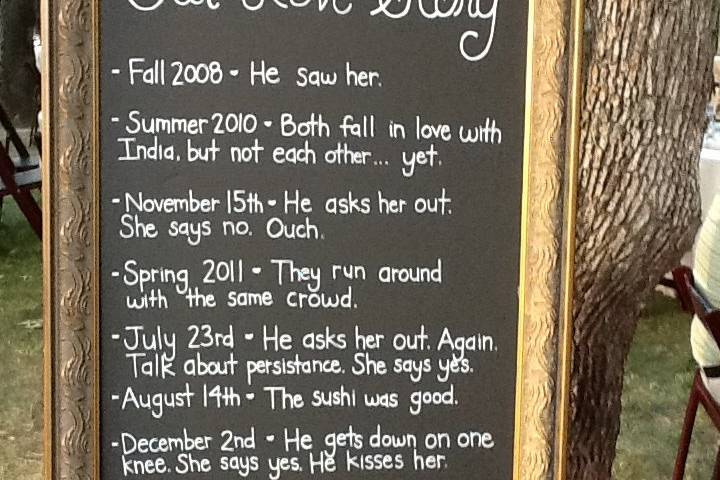 Our Love Story
- Fall 2008 - He saw her.
- Summer 2010 - Both fall in love with
India, but not each other... yet.
- November 15th - He asks her out.
She says no. Ouch.
- Spring 2011 - They run around
with the same crowd.
- July 23rd - He asks her out. Again.
Talk about persistance. She says yes.
- August 14th - The sushi was good.
- December 2nd - He gets down on one
knee. She says yes. He kisses her.